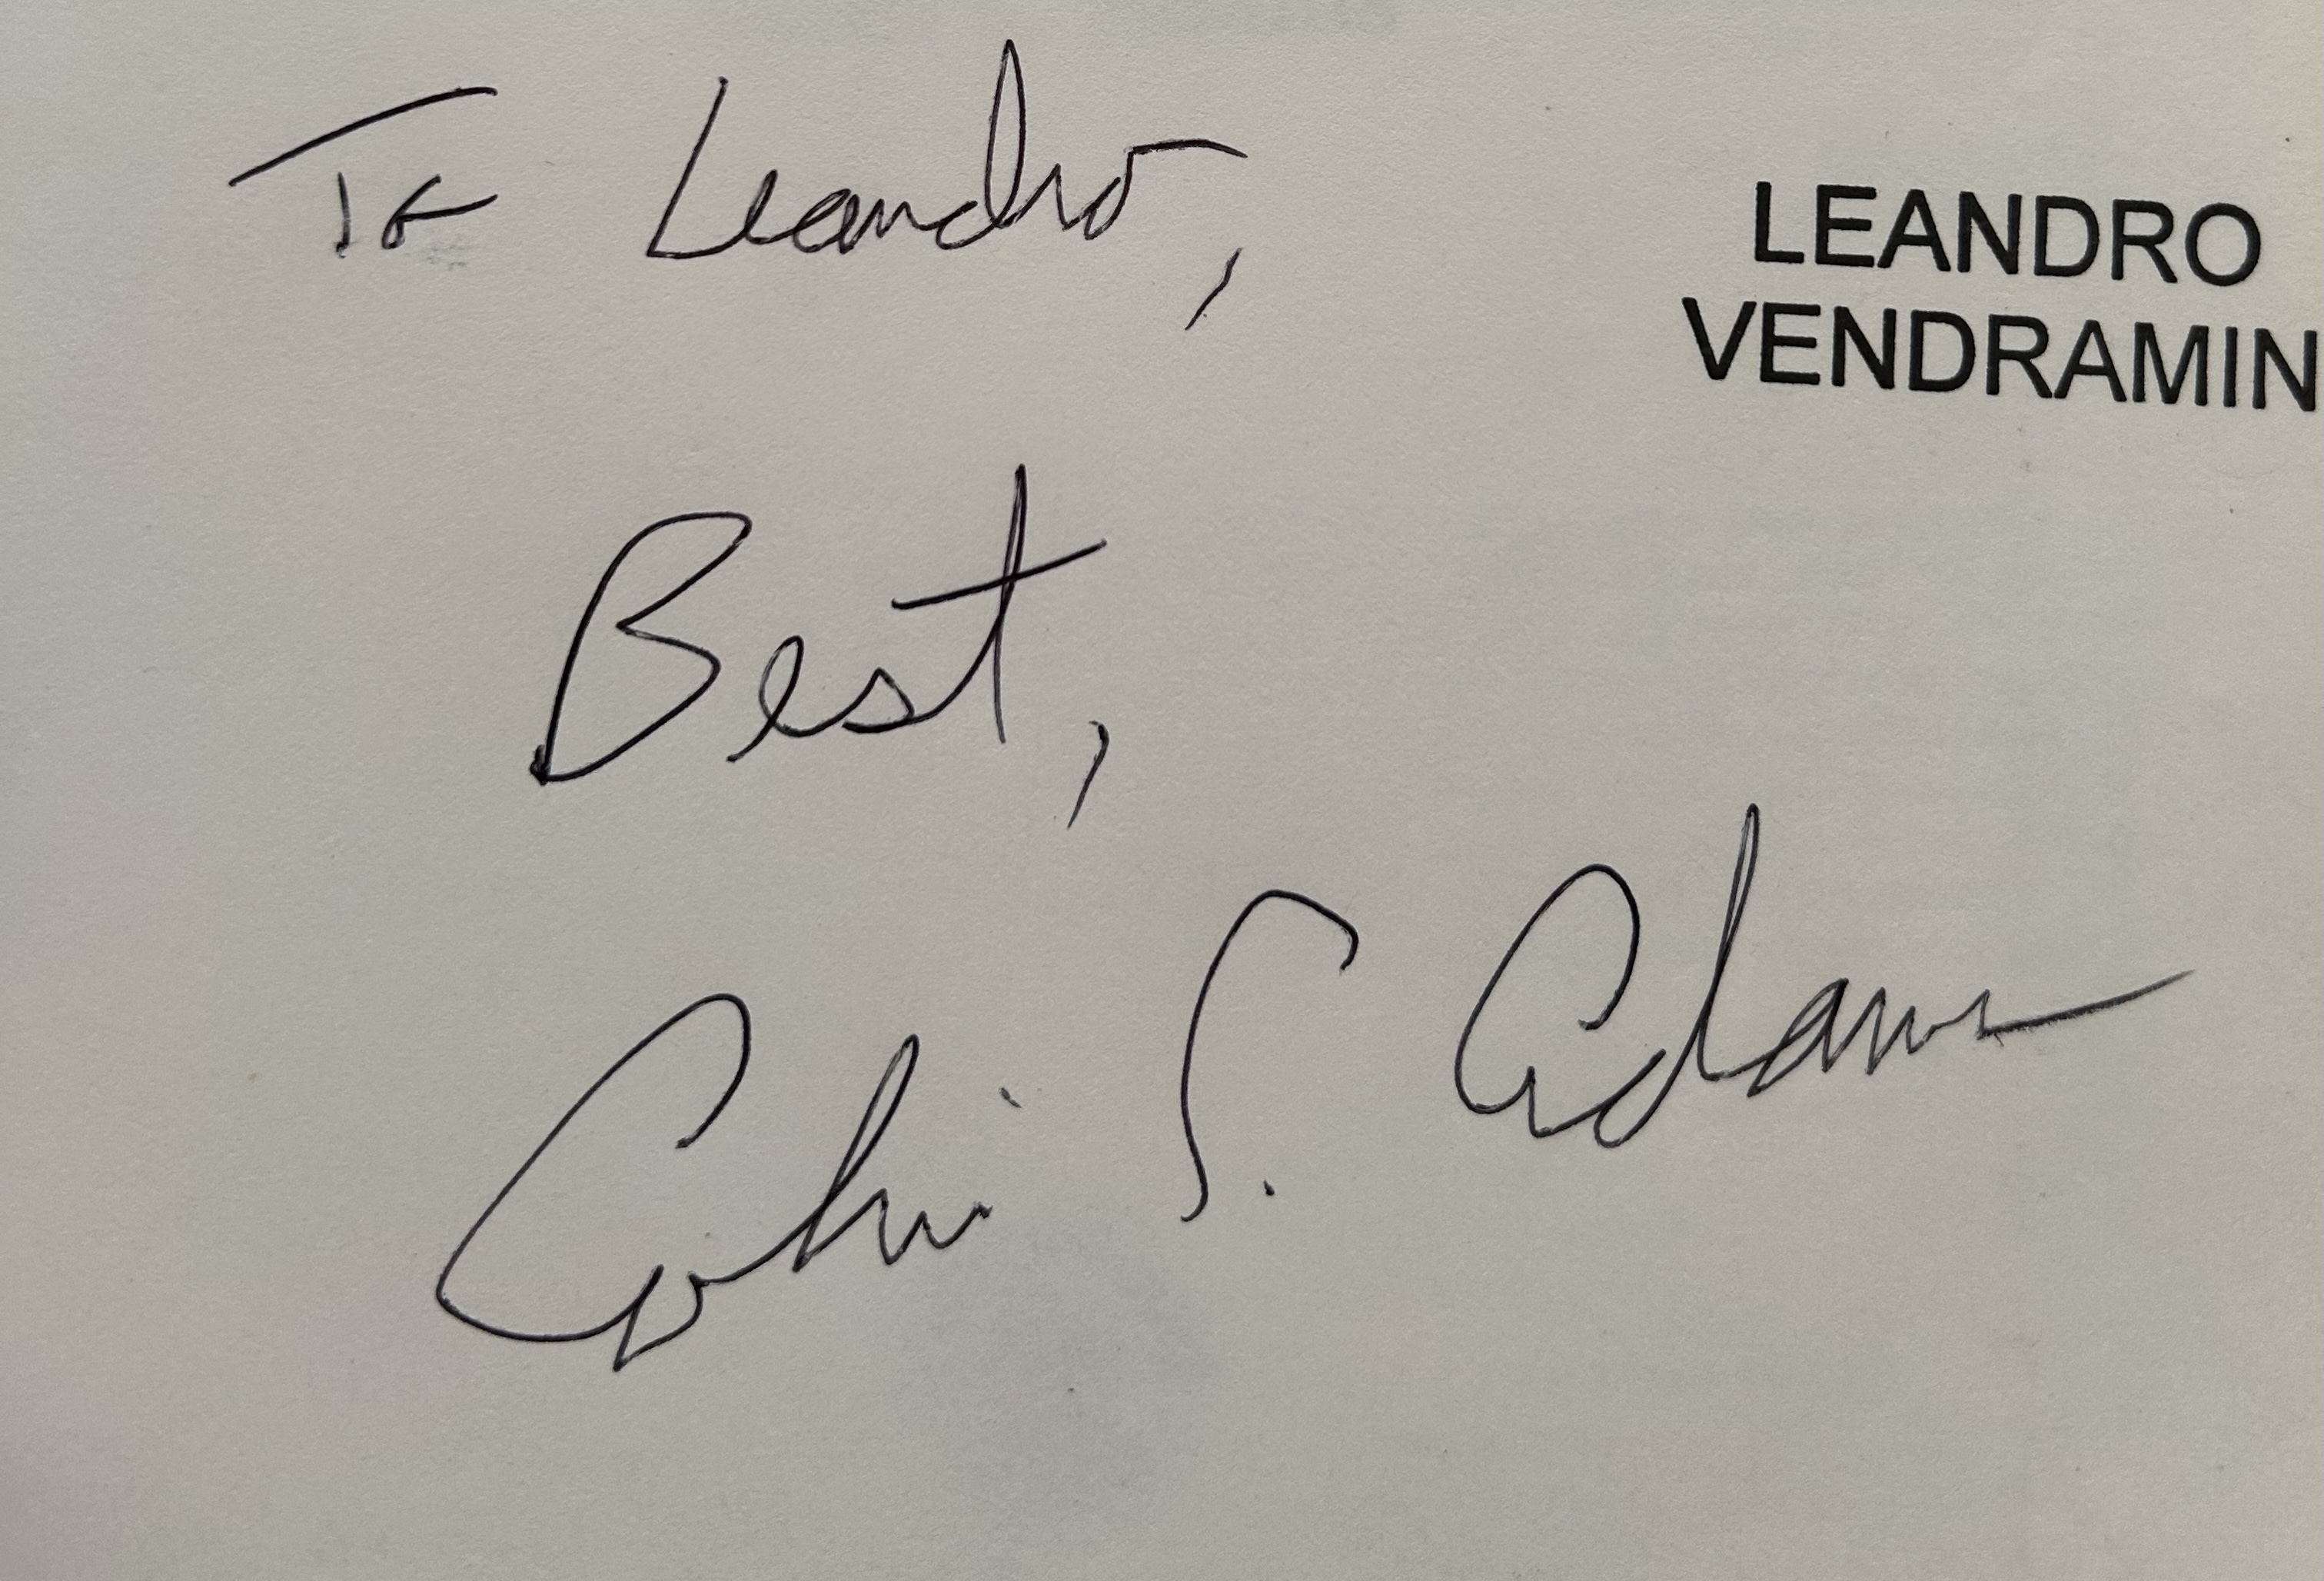 To Leandro,
LEANDRO
VENDRAMIN
Best,
Colin C. Adams